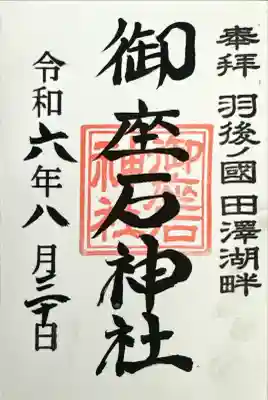 奉拝 羽後ノ國田澤湖畔
御座石神社
御座石
神社
令和六年八月三十日